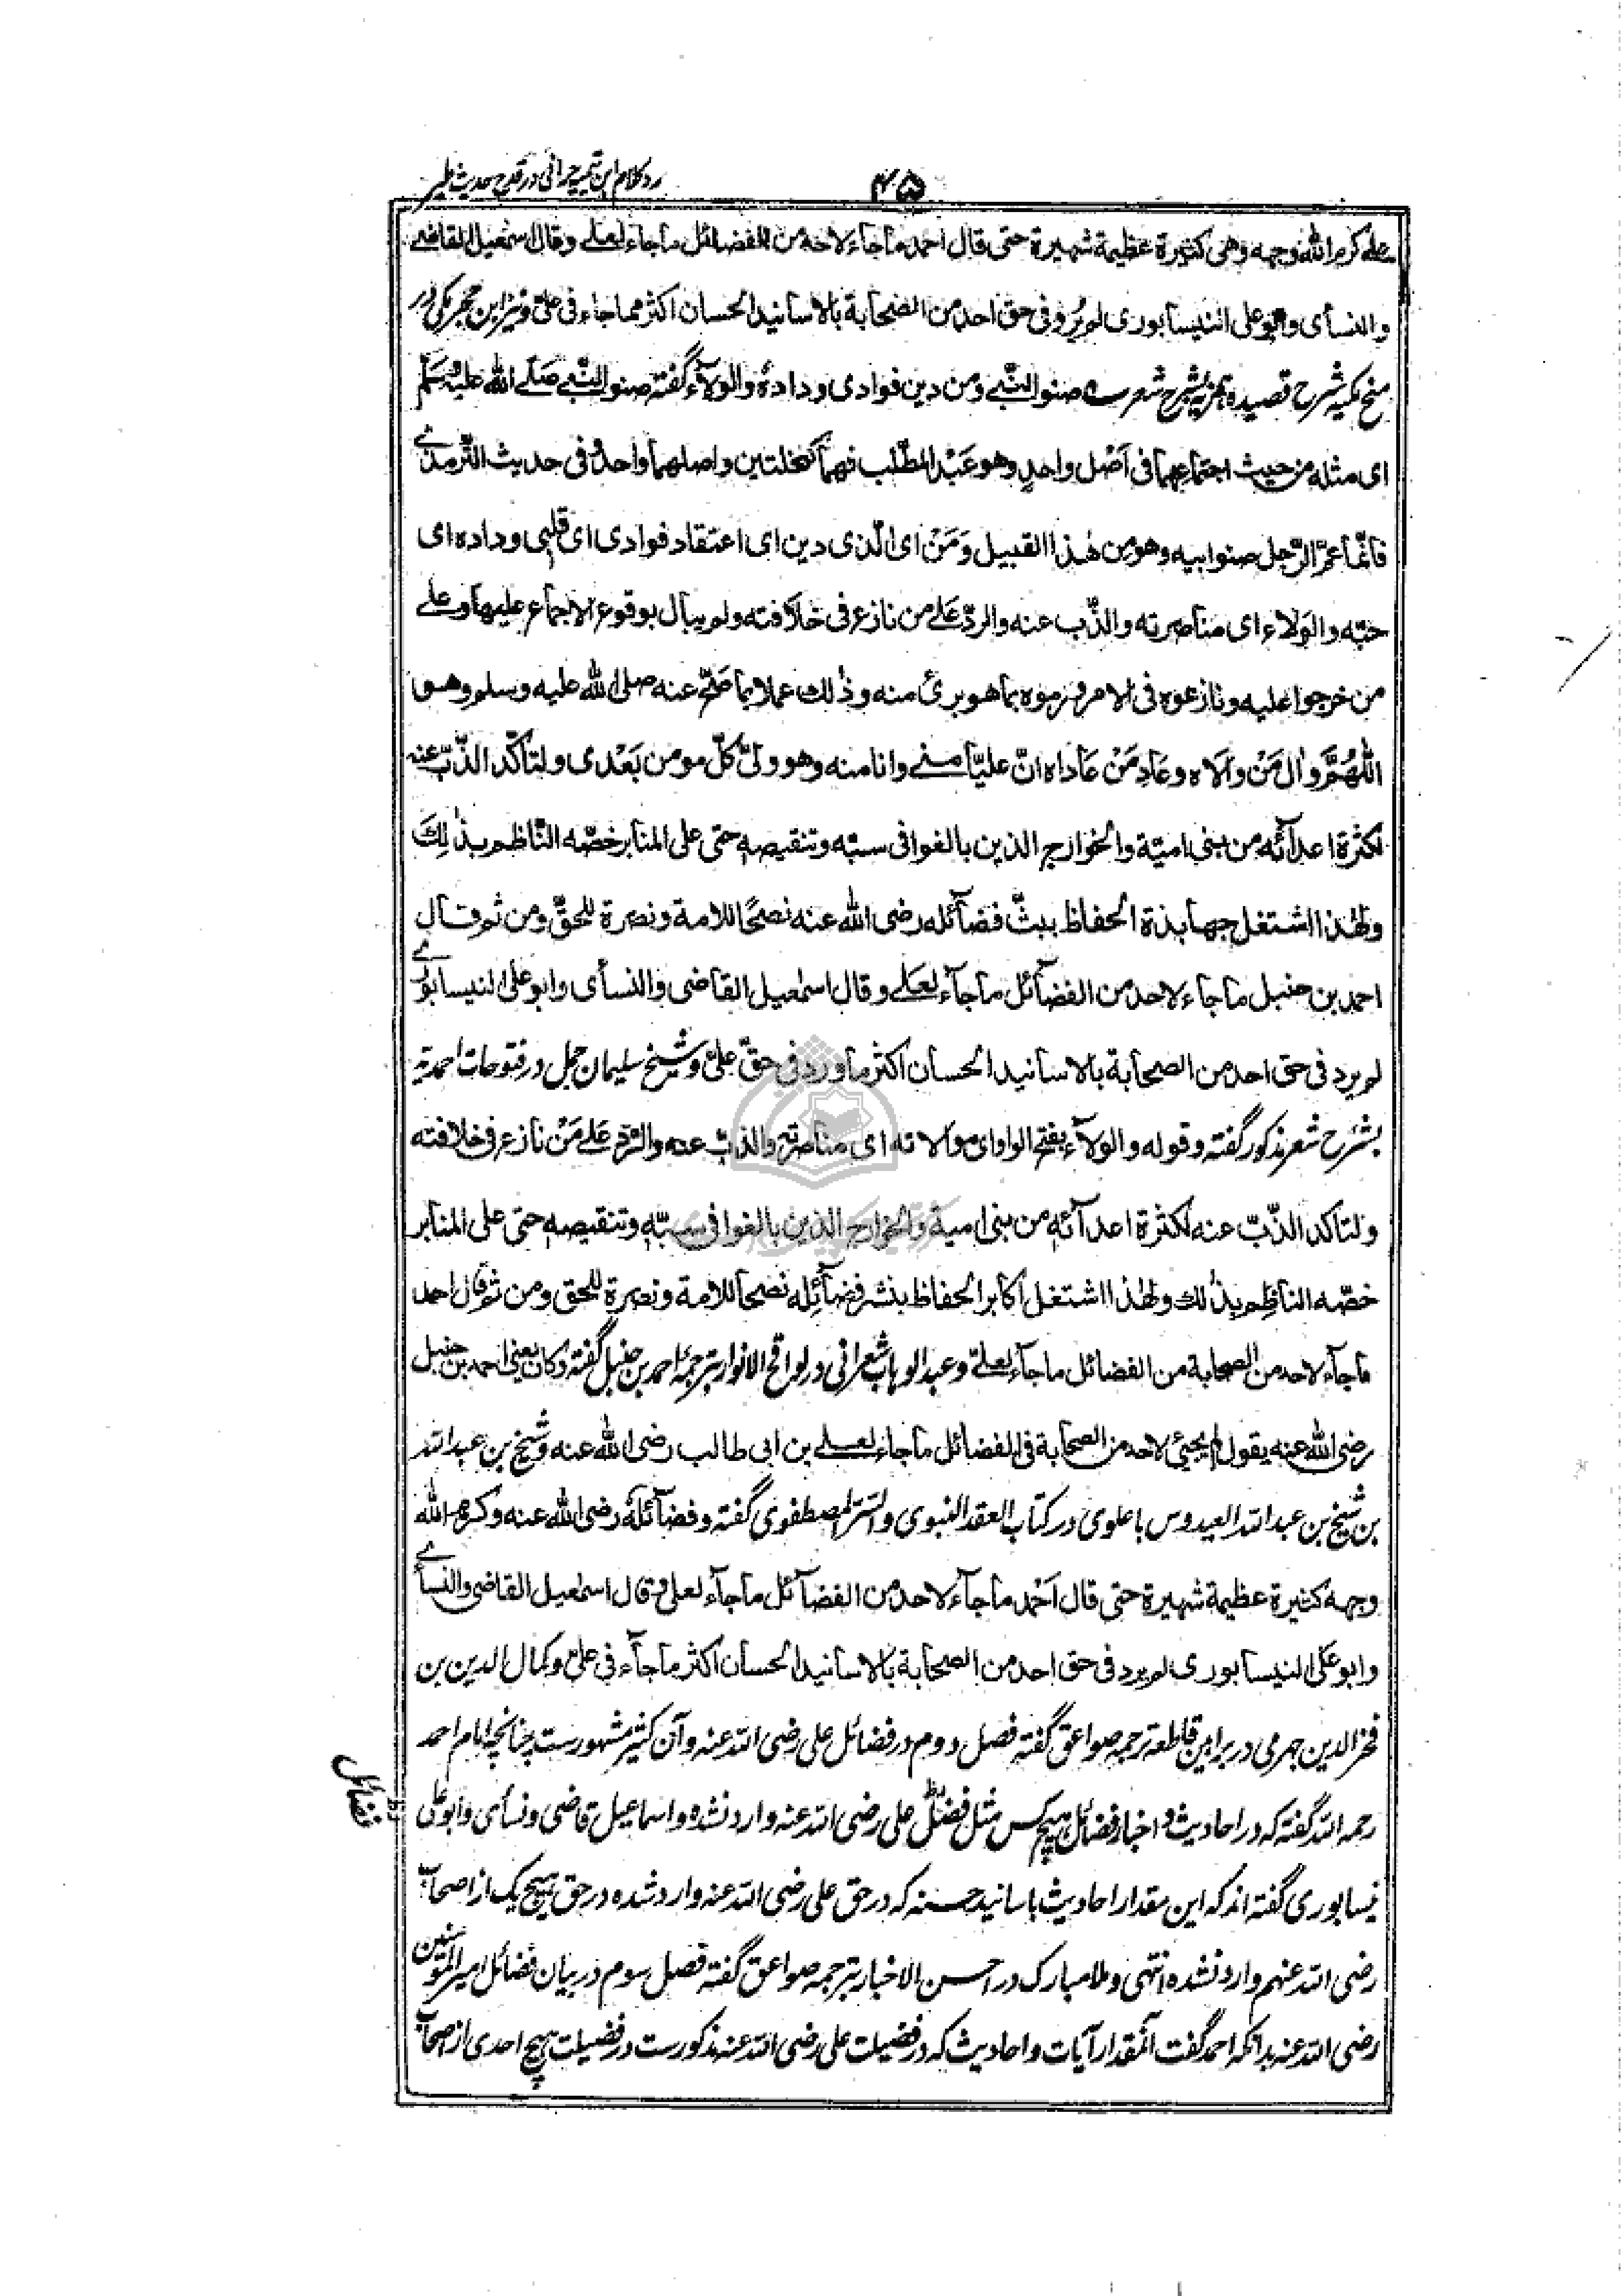 رد کلام ابن تیمیه حرانی در قدح حدیث طیر
علی کرم الله وجهه وهی کثیرة عظیمة شهیرة حتی قال احمد ما جاء لاحد من الفضائل ما جاء لعلی وقال اسمعیل القاضی
والنسأی وابو علی النیسابوری لم یرو فی حق احد من الصحابة بالاسانید الحسان اکثر مما جاء فی علی ونیز ابن حجر مکی در
منح مکیه شرح قصیده همزیه بشرح شعر صنو النبی ومن دین فوادی وداده والولاء گفته صنو النبی صلی الله علیه وسلم
ای مثله من حیث اجتماعهما فی اصل واحدٍ وهو عبد المطلب فهما کنخلتین واصلهما واحد وفی حدیث الترمذی
فانما عم الرجل صنو ابیه وهو من هذا القبیل وَمَنْ ای الّذی دین ای اعتقاد فوادی ای قلبی وداده ای
حبّه والوَلاء ای مناصرته والذّب عنه والردّ علی من نازع فی خلافته ولم یبال بوقوع الاجماع علیها وعلی
من خرجوا علیه ونازعوه فی الامر ورموه بما هو بریٔ منه وذلك عملا بما صحّ عنه صلی الله علیه وسلم وهو
اللّٰهُمَّ وال مَنْ والاه وعَادِ مَنْ عَاداه انّ علیّا منی وانا منه وهو ولیّ کلّ مومن بَعْدی ولتاکّد الذّبّ عنه
لکثرة اعدائه من بنی امیّة والخوارج الذین بالغوا فی سبّه وتنقیصه حتی علی المنابر خصّه النّاظم بذٰلِكَ
ولهٰذا اشتغل جهابذة الحفاظ ببثّ فضائله رضی الله عنه نصحًا للامة ونصرة للحقّ ومن ثم قال
احمد بن حنبل ما جاء لاحد من الفضائل ما جاء لعلی وقال اسمٰعیل القاضی والنسأی وابو علی النیسابوری
لم یرد فی حق احد من الصحابة بالاسانید الحسان اکثر ما ورد فی حقّ علیّ وشیخ سلیمان جمل در فتوحات احمدیه
بشرح شعر مذکور گفته وقوله والولاء بفتح الواو ای موالاته ای مناصرته والذبّ عنه والرّد علی مَنْ نازع فی خلافته
ولتاکد الذّبّ عنه لکثرة اعدائه من بنی امیة والخوارج الذین بالغوا فی سبّه وتنقیصه حتی علی المنابر
خصّه الناظم بذٰلك ولهذا اشتغل اکابر الحفاظ بنشر فضائله نصحا للامة ونصرة للحق ومن ثم قال احمد
ما جاء لاحد من الصحابة من الفضائل ما جاء لعلیّ وعبد الوهاب شعرانی در لواقح الانوار بترجمهٔ احمد بن حنبل گفته وکان یعنی احمد بن حنبل
رضی الله عنه یقول لم یجیٔ لاحد من الصحابة فی الفضائل ما جاء لعلی بن ابی طالب رضی الله عنه وشیخ بن عبد الله
بن شیخ بن عبد الله العیدروس باعلوی در کتاب العقد النبوی والسّرّ المصطفوی گفته وفضائله رضی الله عنه وکرم الله
وجهه کثیرة عظیمة شهیرة حتی قال احمد ما جاء لاحد من الفضائل ما جاء لعلی وقال اسمٰعیل القاضی والنسأی
وابو علی النیسابوری لم یرد فی حق احد من الصحابة بالاسانید الحسان اکثر ما جاء فی علیّ وکمال الدین بن
فخر الدین جهرمی در براهین قاطعه ترجمه صواعق گفته فصل دوم در فضائل علی رضی الله عنه وآن کثیر مشهورست چنانچه امام احمد
رحمه الله گفته که در احادیث و اخبار فضائل هیچ کس مثل فضائل علی رضی الله عنه وارد نشده واسماعیل قاضی ونسأی وابو علی
فضائل
نیسابوری گفته اند که این مقدار احادیث باسانید حسنه که در حق علی رضی الله عنه وارد شده در حق هیچ یک از اصحاب
رضی الله عنهم وارد نشده انتهی وملا مبارک در احسن الاخبار ترجمه صواعق گفته فصل سوم در بیان فضائل امیر المؤمنین
رضی الله عنه بدانکه احمد گفت آنقدار آیات واحادیث که در فضیلت علی رضی الله عنه مذکورست در فضیلت هیچ احدی از اصحاب